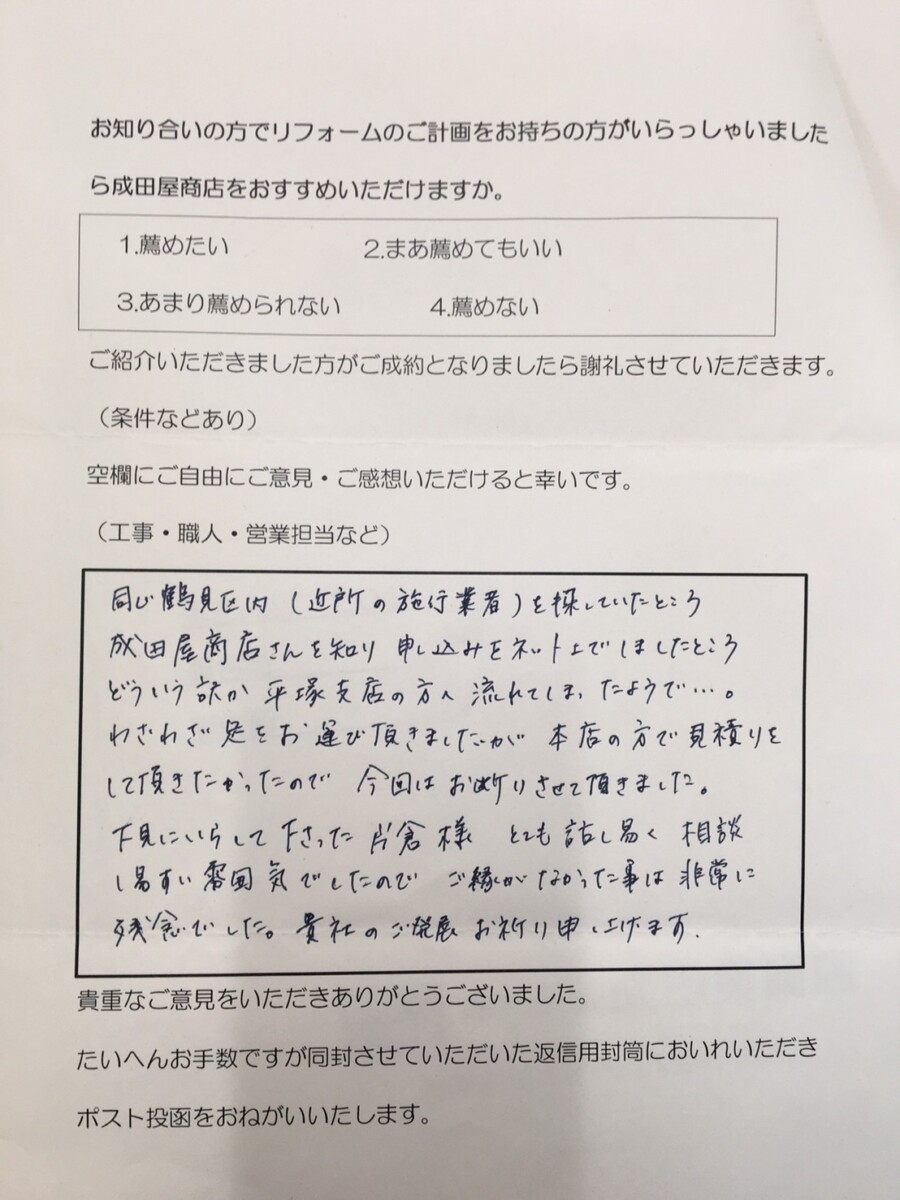 お知り合いの方でリフォームのご計画をお持ちの方がいらっしゃいました
ら成田屋商店をおすすめいただけますか。
1.薦めたい 2.まあ薦めてもいい
3.あまり薦められない 4.薦めない
ご紹介いただきました方がご成約となりましたら謝礼させていただきます。
（条件などあり）
空欄にご自由にご意見・ご感想いただけると幸いです。
（工事・職人・営業担当など）
同じ鶴見区内（近所の施行業者）を探していたところ
成田屋商店さんを知り 申し込みをネット上でしましたところ
どういう訳か 平塚支店の方へ 流れてしまったようで…。
わざわざ足をお運び頂きましたが 本店の方で見積りを
して頂きたかったので 今回はお断りさせて頂きました。
下見にいらして下さった片倉様 とても話し易く 相談
し易すい雰囲気でしたので ご縁がなかった事は非常に
残念でした。貴社のご発展お祈り申し上げます.
貴重なご意見をいただきありがとうございました。
たいへんお手数ですが同封させていただいた返信用封筒においれいただき
ポスト投函をおねがいいたします。